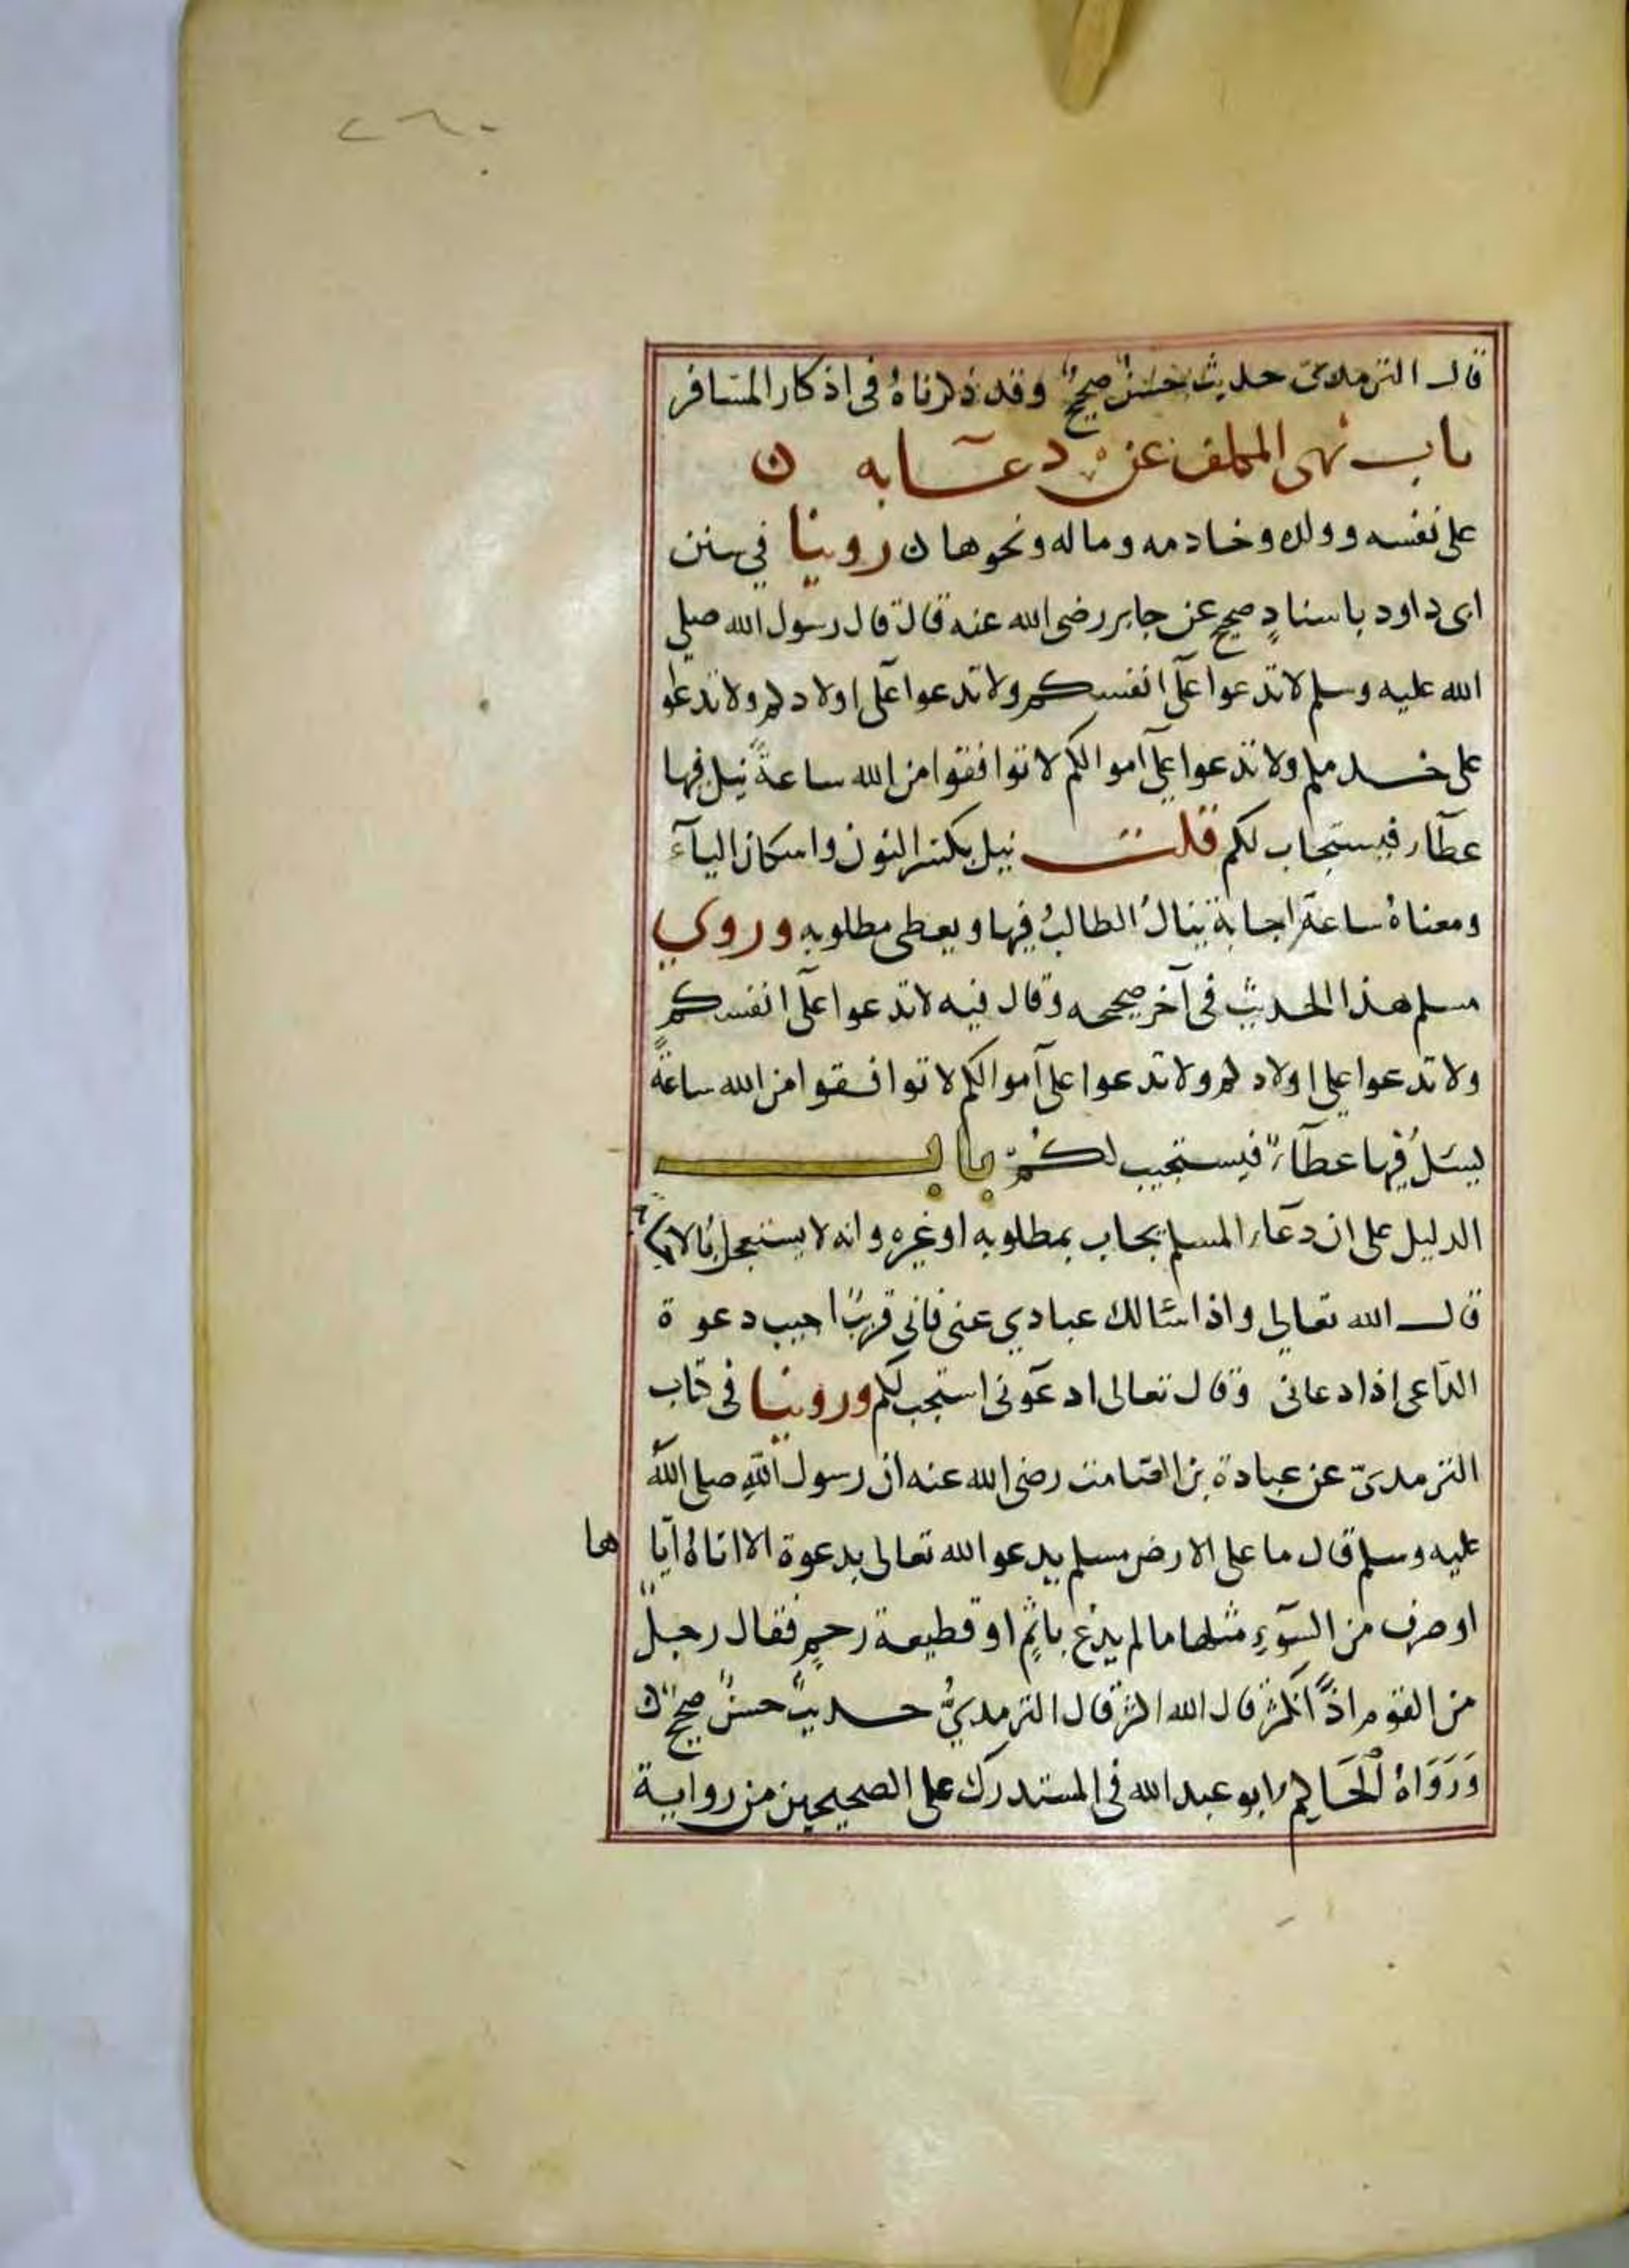 ٢٦٠
قال الترمذي حديث حسنٌ صحيحٌ وقد ذكرناهُ في اذكار المسافر
باب نهى المكلف عن دعآيه ن
على نفسه وولده وخادمه وماله ونحوها ن روينا في سنن
ابى داود باسنادٍ صحيح عن جابر رضى الله عنه قال قال رسول الله صلى
الله عليه وسلم لا تدعوا على انفسكم ولا تدعوا على اولادكم ولا تدعوا
على خدمكم ولا تدعوا على اموالكم لا توافقوا من الله ساعةً نيل فيها
عطآء فيستجاب لكم قلت نيل بكسر النون واسكان اليآء
ومعناهُ ساعة اجابة ينالُ الطالبُ فيها ويعطى مطلوبه وروي
مسلم هذا الحديث في آخر صحيحه وقال فيه لا تدعوا على انفسكم
ولا تدعوا على اولادكم ولا تدعوا على اموالكم لا توافقوا من الله ساعةً
يسئلُ فيها عطآءٌ فيستجيب لكم باب
الدليل على ان دعآء المسلم يجاب بمطلوبه او غيره وانه لا يستعجل بالاجابة
قال الله تعالى واذا سئالك عبادي عنى فانى قريبٌ اجيب دعوة
الدّاعى اذا دعانى وقال تعالى ادعونى استجب لكم وروينا في كتاب
الترمديّ عن عبادة بن الصامت رضى الله عنه ان رسول الله صلى اللهُ
عليه وسلم قال ما على الارض مسلم يدعو الله تعالى بدعوة الا اتاهُ ايّا ها
او صرف من السّوءِ مثلها ما لم يدعُ باثمٍ او قطيعة رحمٍ فقال رجلٌ
من القوم اذًا نكثر قال الله اكثر قال الترمديُّ حديثٌ حسنٌ صحيحٌ ن
وَرَوَاهُ الْحَاكِم ابو عبد الله فى المستدرك على الصحيحين من رواية